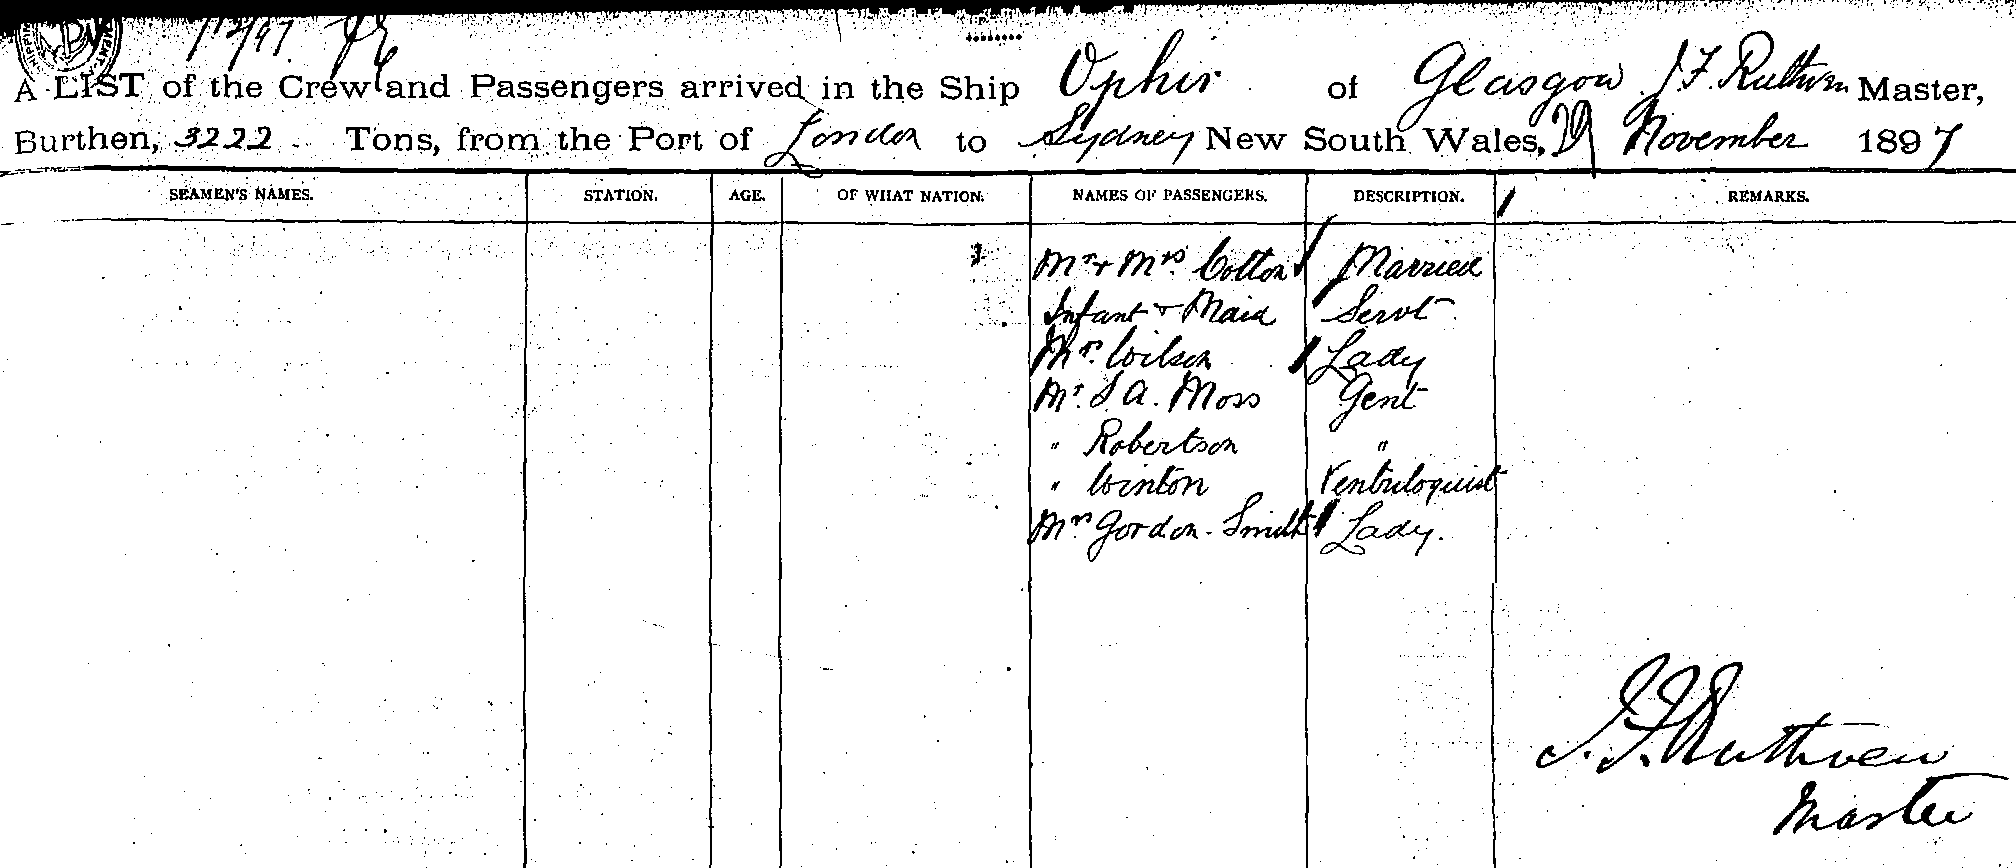 1/12/97.
A LIST of the Crew and Passengers arrived in the Ship Ophir of Glasgow J F. Ruthven Master,
Burthen, 3222 Tons, from the Port of London to Sydney New South Wales, November 1897
SEAMEN'S NAMES. STATION. AGE. OF WHAT NATION. NAMES OF PASSENGERS. DESCRIPTION. REMARKS.
Mr + Mrs Cotton Married
Infant + Maid Servt
Mrs. Wilson Lady
Mr. S A. Moss Gent
" Robertson "
" Winton Ventriloquist
Mrs Gordon-Smith Lady.
J. F. Ruthven
Master